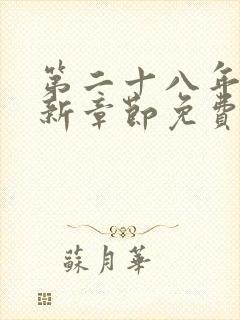 第二十八年
新章節免費
蘇月華